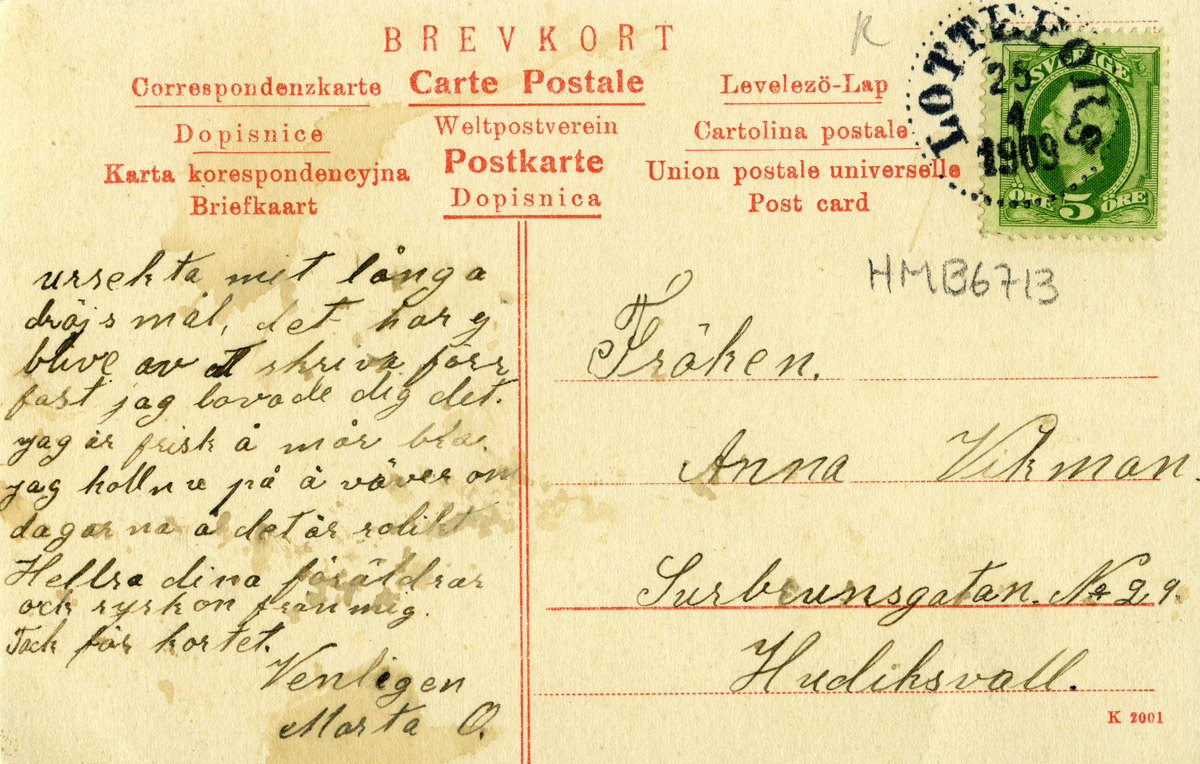 BREVKORT
Correspondenzkarte Carte Postale Levelezö-Lap
Dopisnice Weltpostverein Cartolina postale
Karta korespondencyjna Postkarte Union postale universelle
Briefkaart Dopisnica Post card
R
LOTTEFORS
25
4
1909
SVERIGE
5 ÖRE
HMB6713
ursekta mit långa
dröjsmål, det har ej
blive av at skriva förr
fast jag lovade dig det.
jag är frisk å mår bra.
jag holl på å väver om
dagarna å det är rolikt
Hellsa dina föräldrar
ock syskon från mig.
Tack för kortet.
Venligen
Marta O.
Fröken.
Anna Vikman.
Surbrunsgatan. No 29.
Hudiksvall.
K 2001